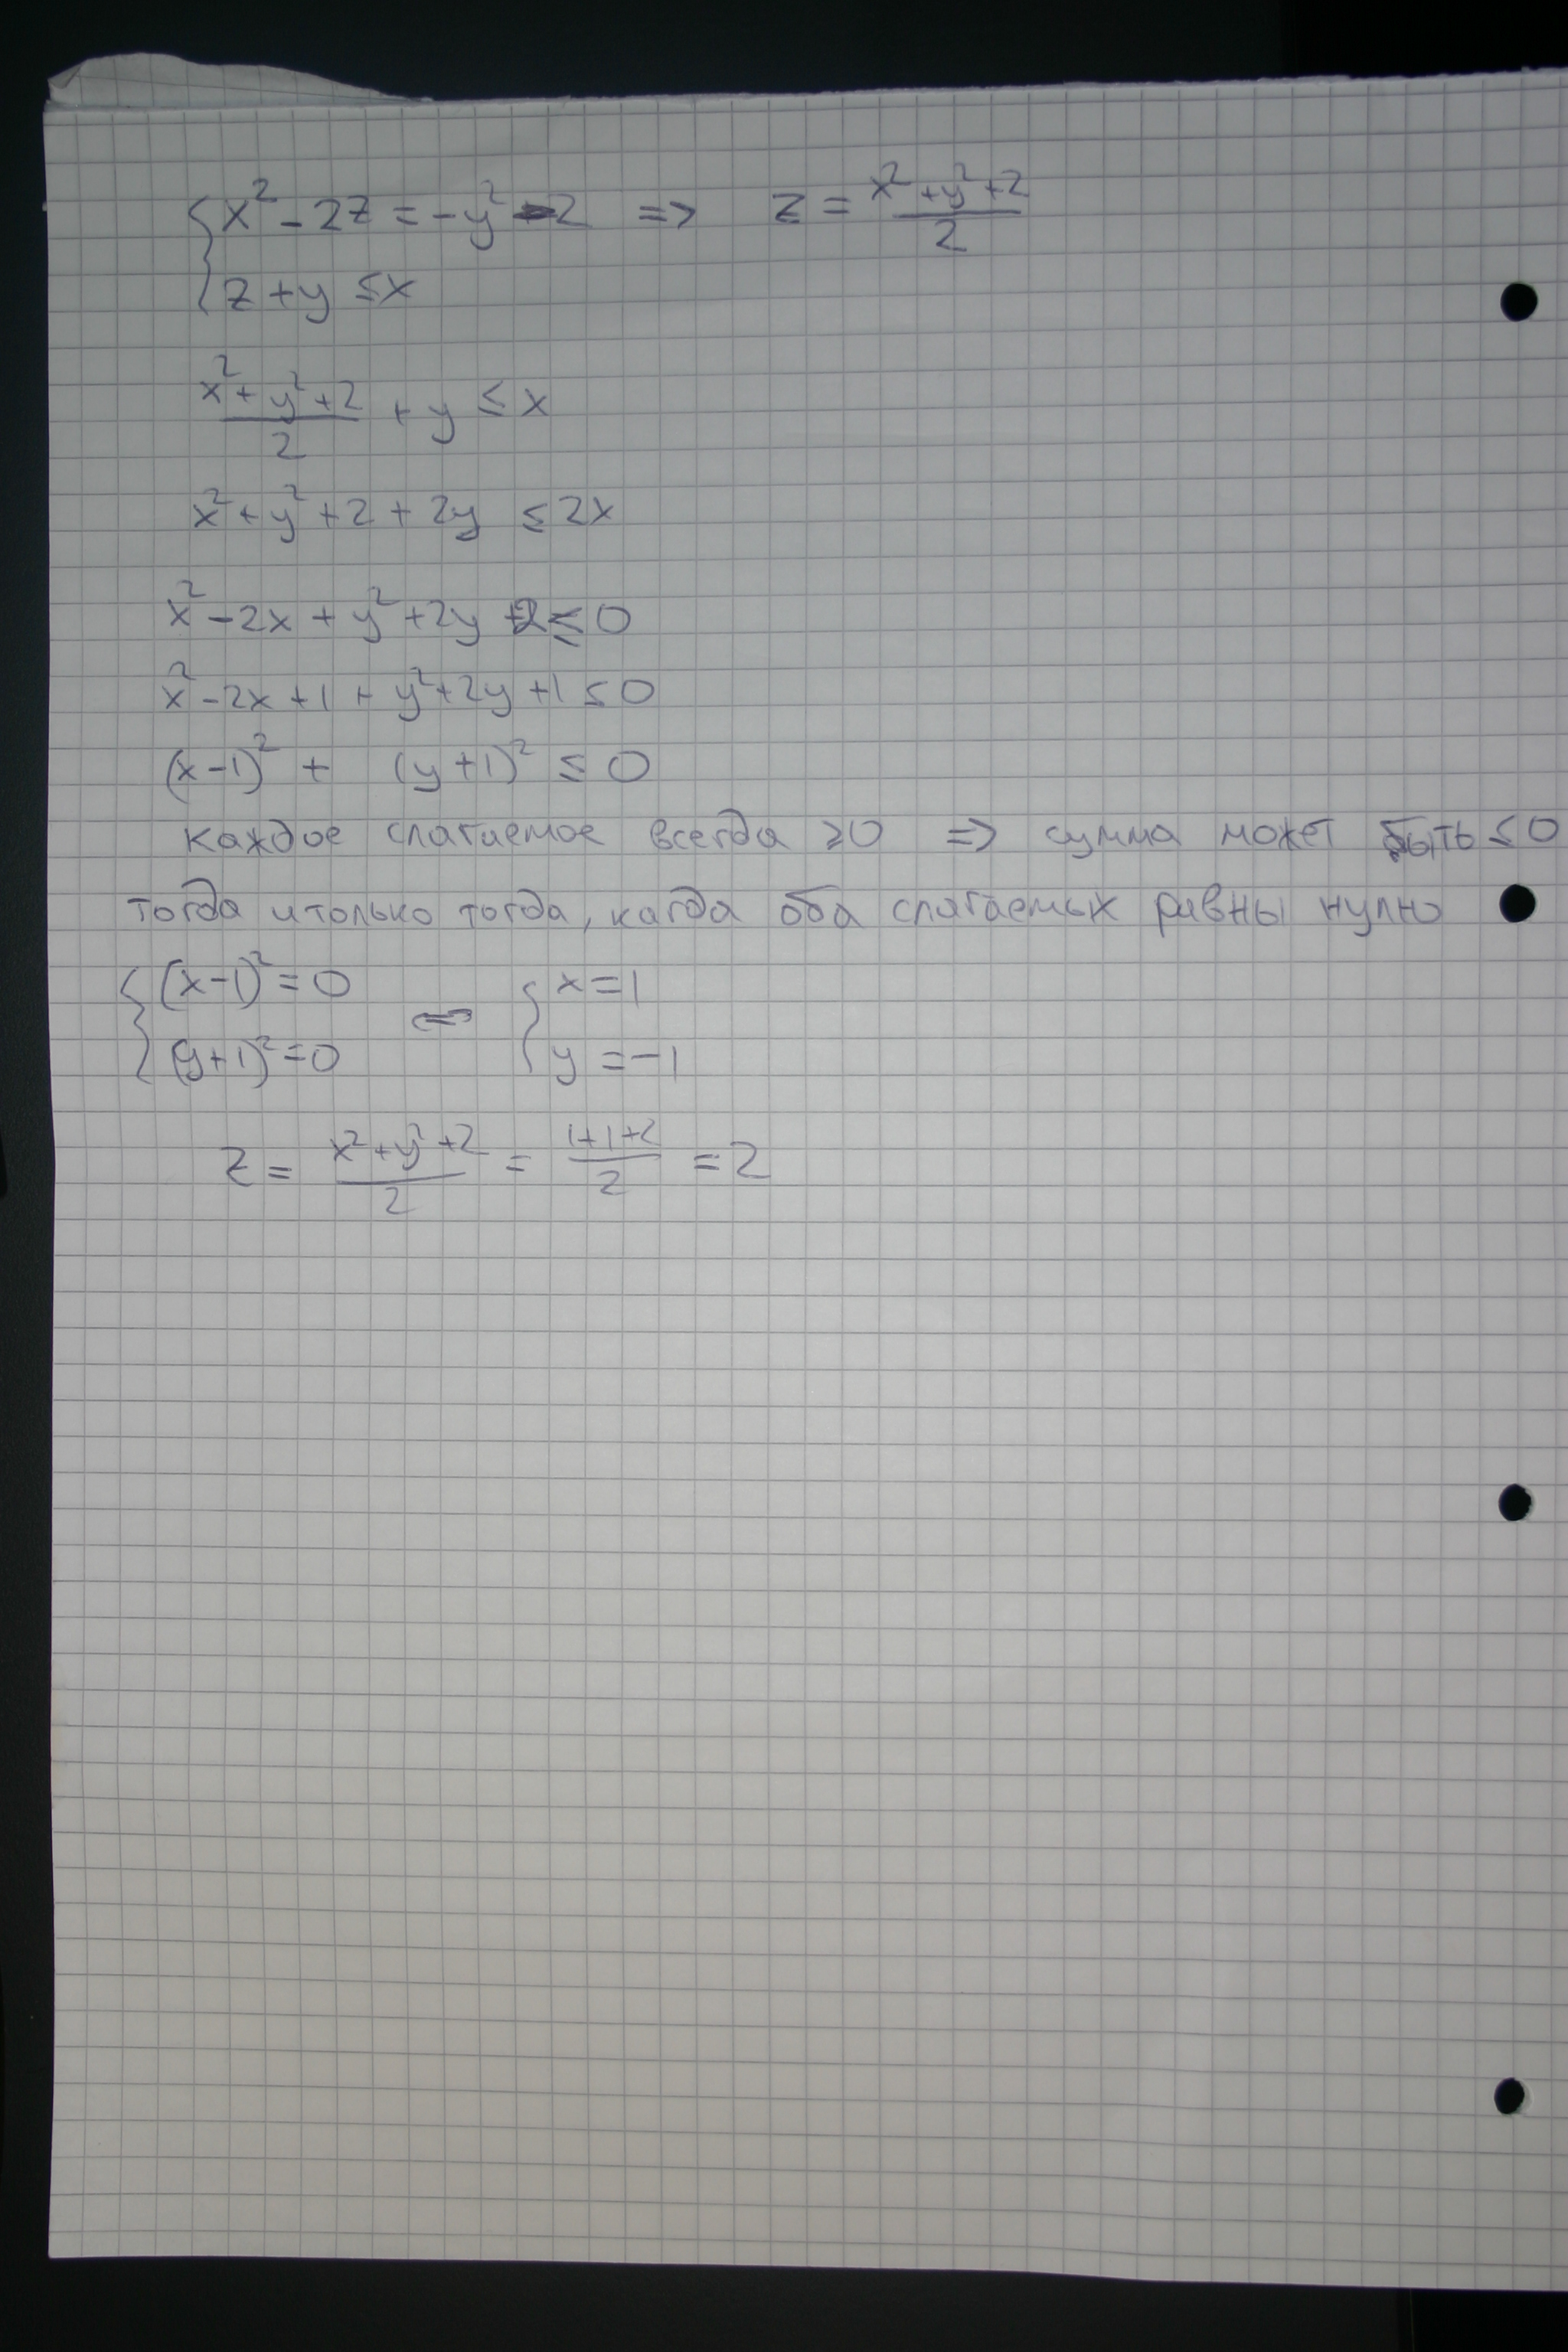 { x² - 2z = -y² - 2 => z = (x² + y² + 2)/2
z + y ≤ x
(x² + y² + 2)/2 + y ≤ x
x² + y² + 2 + 2y ≤ 2x
x² - 2x + y² + 2y + 2 ≤ 0
x² - 2x + 1 + y² + 2y + 1 ≤ 0
(x-1)² + (y+1)² ≤ 0
каждое слагаемое всегда ≥0 => сумма может быть ≤0
тогда и только тогда, когда оба слагаемых равны нулю
{ (x-1)² = 0 <=> { x = 1
(y+1)² = 0 y = -1
z = (x² + y² + 2)/2 = (1+1+2)/2 = 2